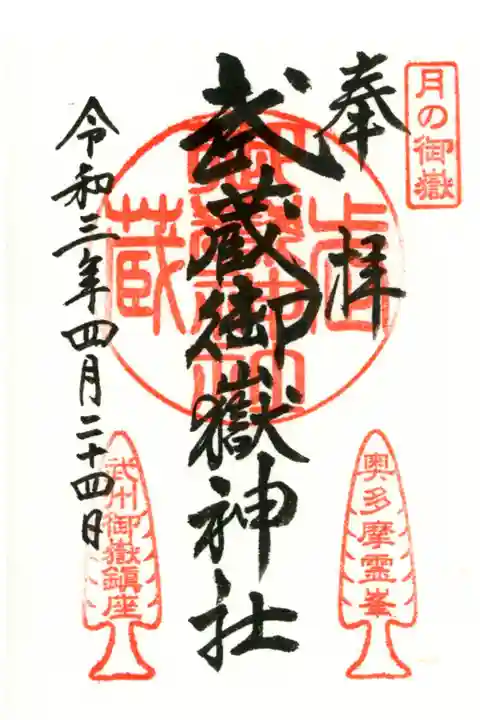 月の御嶽
奉拝
武蔵御嶽神社
令和三年四月二十四日
武蔵
御嶽神社
奥多摩霊峯
武州御嶽鎮座